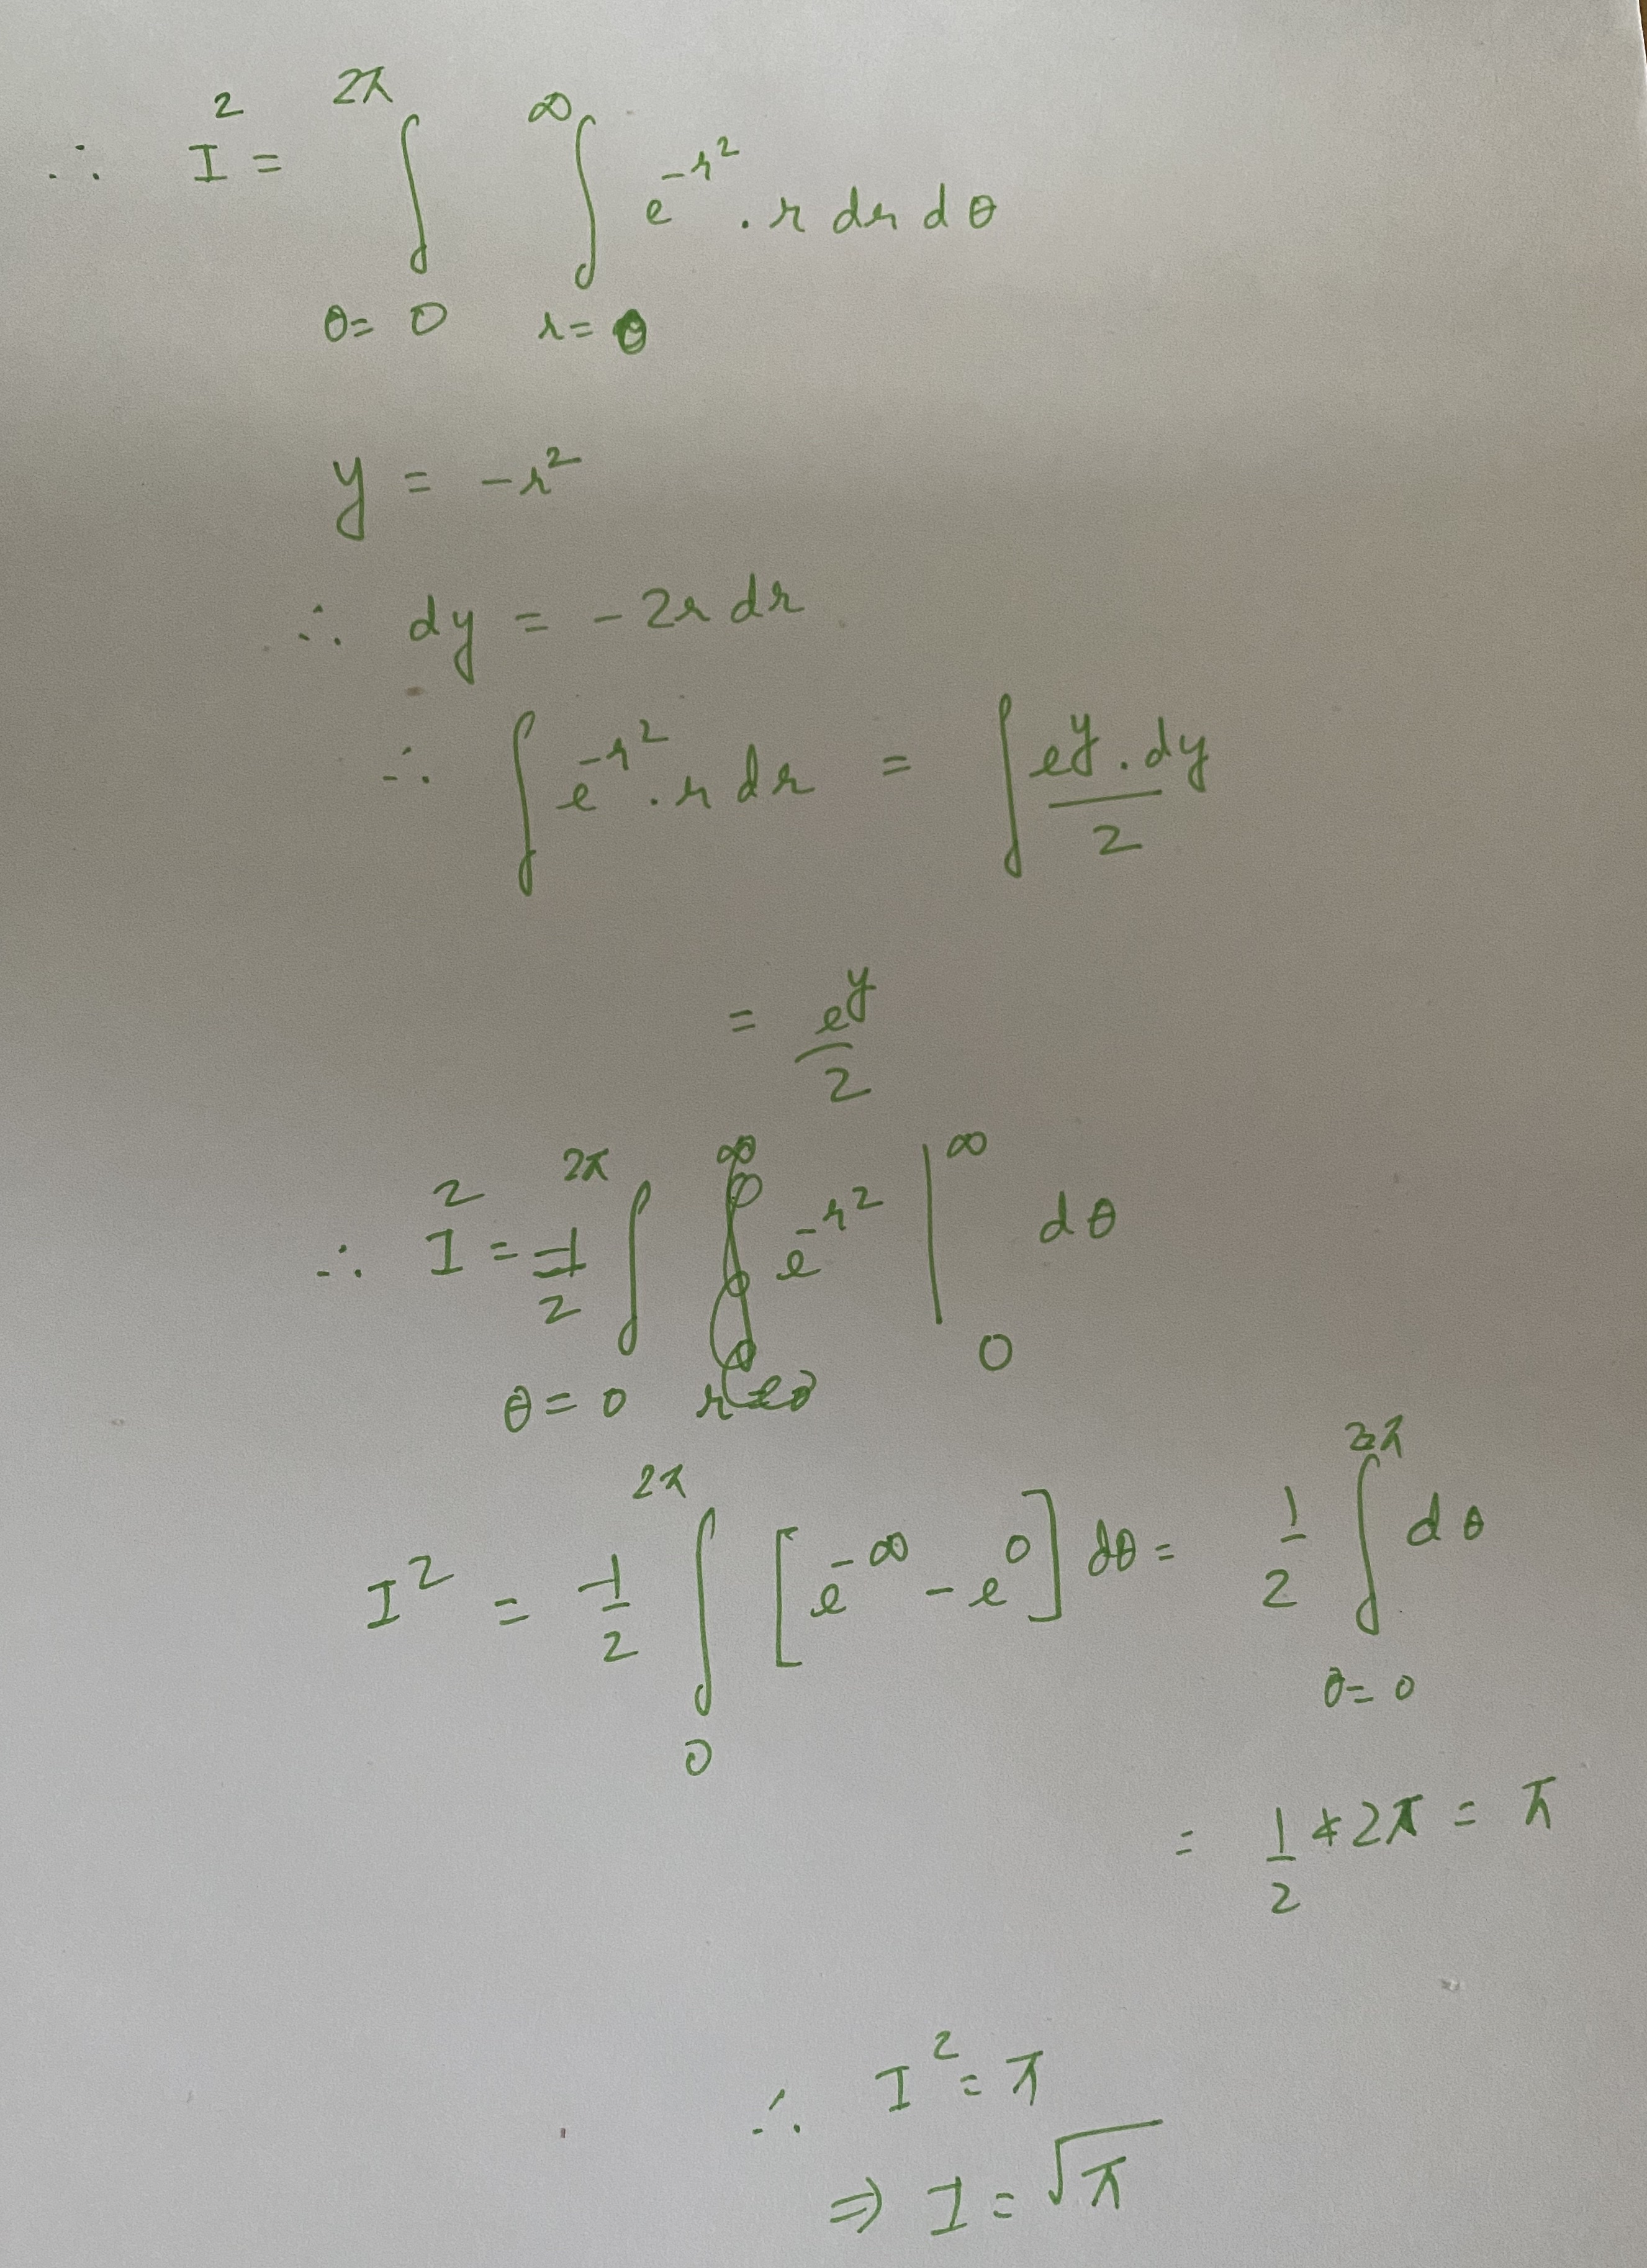 ∴ I² = ∫_{θ=0}^{2π} ∫_{r=0}^{∞} e^{-r²} . r dr dθ
y = -r²
∴ dy = -2r dr
∴ ∫ e^{-r²} . r dr = ∫ e^y . dy / 2
= e^y / 2
∴ I² = -1/2 ∫_{θ=0}^{2π} e^{-r²} |_0^∞ dθ
I² = -1/2 ∫_0^{2π} [e^{-∞} - e^0] dθ = 1/2 ∫_{θ=0}^{2π} dθ
= 1/2 * 2π = π
∴ I² = π
⇒ I = √π